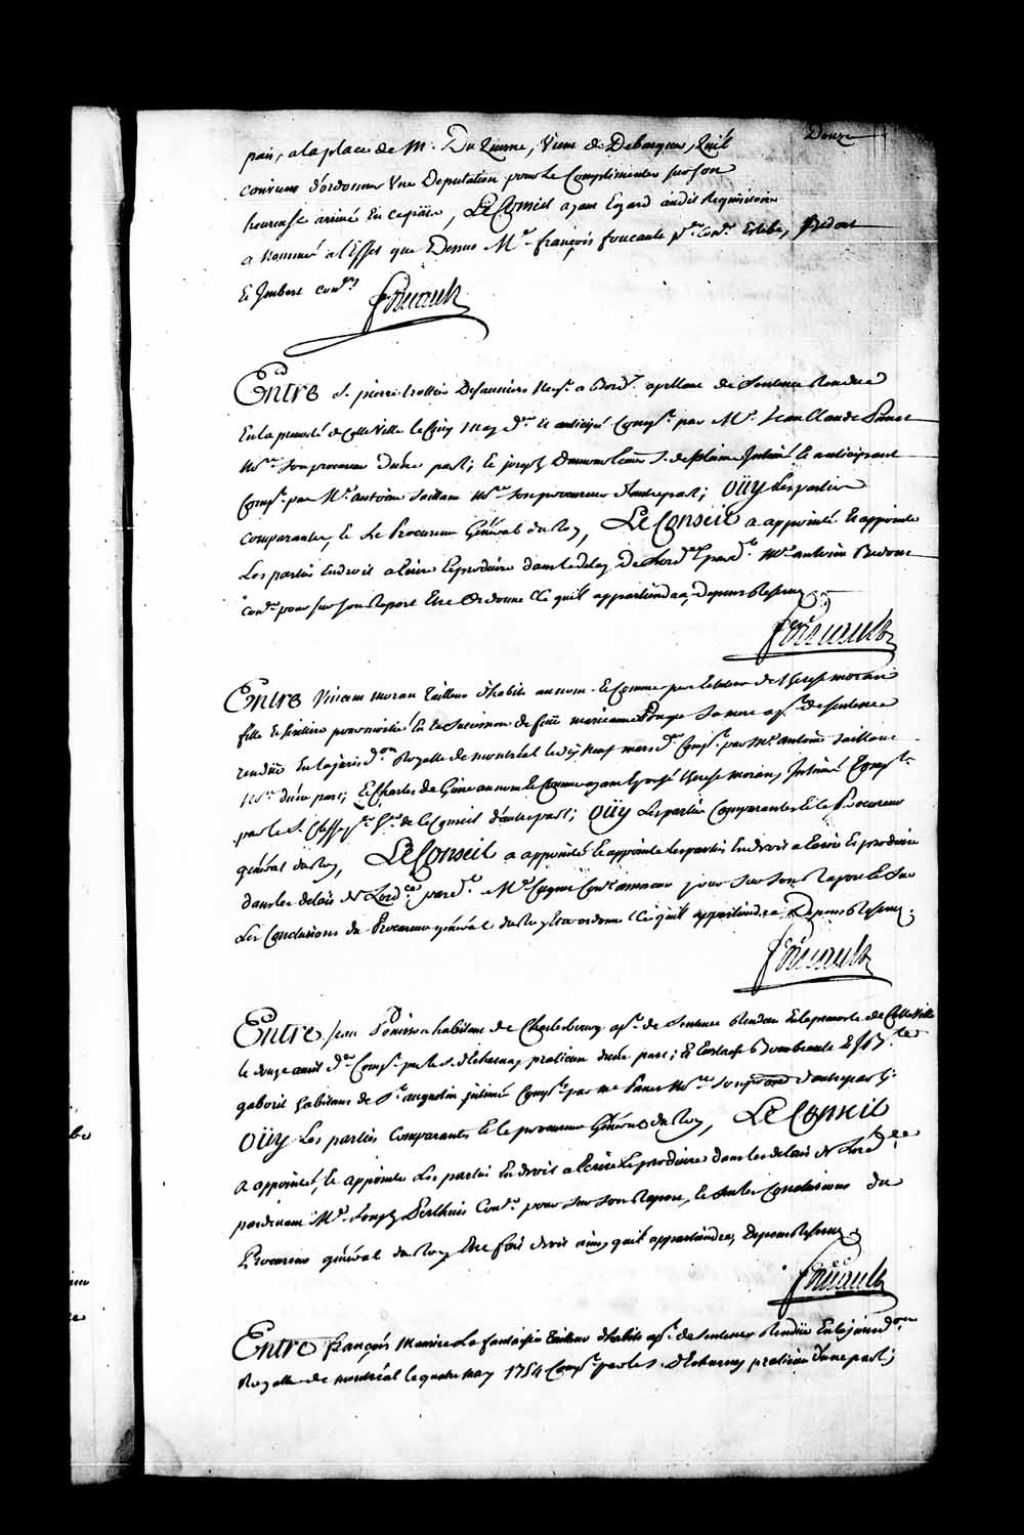 Douze
païs, a la place de M. Du Quesne, Vient de Debarquer, quil
convient d'ordonner Une Deputation pour Le Complimenter sur Son
heureuse arrivée En ce païs, Le Conseil ayant Egard audit Requisitoire
a Nommé a l'Effet que Dessus Me. françois foucault pr. Conr. Estebe, Bedout
Et Imbert conrs.
Foucault
Entre Sr. pierre trottier Desauniers Negt. a Bord. apellant de Sentence Rendue
En la prevosté de Cette Ville le Cinq may dr. Et anticipé Compt. par Me. Jean Claude Panet
Nre. Son procureur d'une part; Et joseph Sr. de plaine Intimé Et anticipant
Compt. par Me. antoine Saillant Nre. Son procureur d'autre part; Oüy Les parties
comparantes, Et Le Procureur Général du Roy, Le Conseil a appointé Et appointe
Les parties En droit a Ecrire Et produire dans le delay de Lord.ce par dt. Me. antoine Bedout
Conr. pour sur Son Raport Etre Ordonné Ce quil appartiendra, Depens Reservez
Foucault
Entre Vincent moran tailleur d'habits au nom Et Comme Tuteur de therese moran
fille Et heritiere pour moitié En La Succession de feüe marieanne Sa mere apt. de Sentence
rendüe En la jurisd.on Royalle de montréal le neuf mars dr. Compt. par Me. antoine Saillant
Nre. d'une part; Et Charles de Guire au nom Et Comme ayant Epousé therese moran, Intimé Compt.
par le Sr. Gr. de Le Conseil d'autre part; Oüy Les parties Comparantes Et Le Procureur
général du Roy, Le Conseil a appointé Et appointe Les parties En droit a Ecrire Et produire
dans les delais de Lord.ce par dt. Me. Cugnet Conr. pour Sur Son Raport Et Sur
Les Conclusions du Procureur général du Roy Etre ordonné Ce quil appartiendra Depens Reservez
Foucault
Entre Jean habitant de Charlesbourg apt. de Sentence Rendue En la prevosté de Cette Ville
le douze avril dr. Compt. par le S. Decharnay praticien d'une part; Et
gaboril habitans de St. augustin intimés Compt. par me Panet Nre. Son procur. d'autre part;
Oüy Les parties Comparantes Et le procureur Général du Roy, Le Conseil
a appointé, Et appointe Les parties En droit a Ecrire Et produire dans les delais de Lord.ce
pardevant Me. Joseph Perthuis Conr. pour Sur Son Raport, Et Sur les Conclusions du
Procureur général du Roy Etre fait droit ainsy quil appartiendra, Depens Reservez
Foucault
Entre françois La fantaisie tailleur d'habits apt. de Sentence Rendüe En la jurisd.on
Royalle de montréal le quatre may 1754 Compt. par le S. Decharnay praticien d'une part;